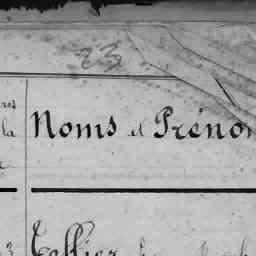 23
res
la Noms et Préno
3 Tellier